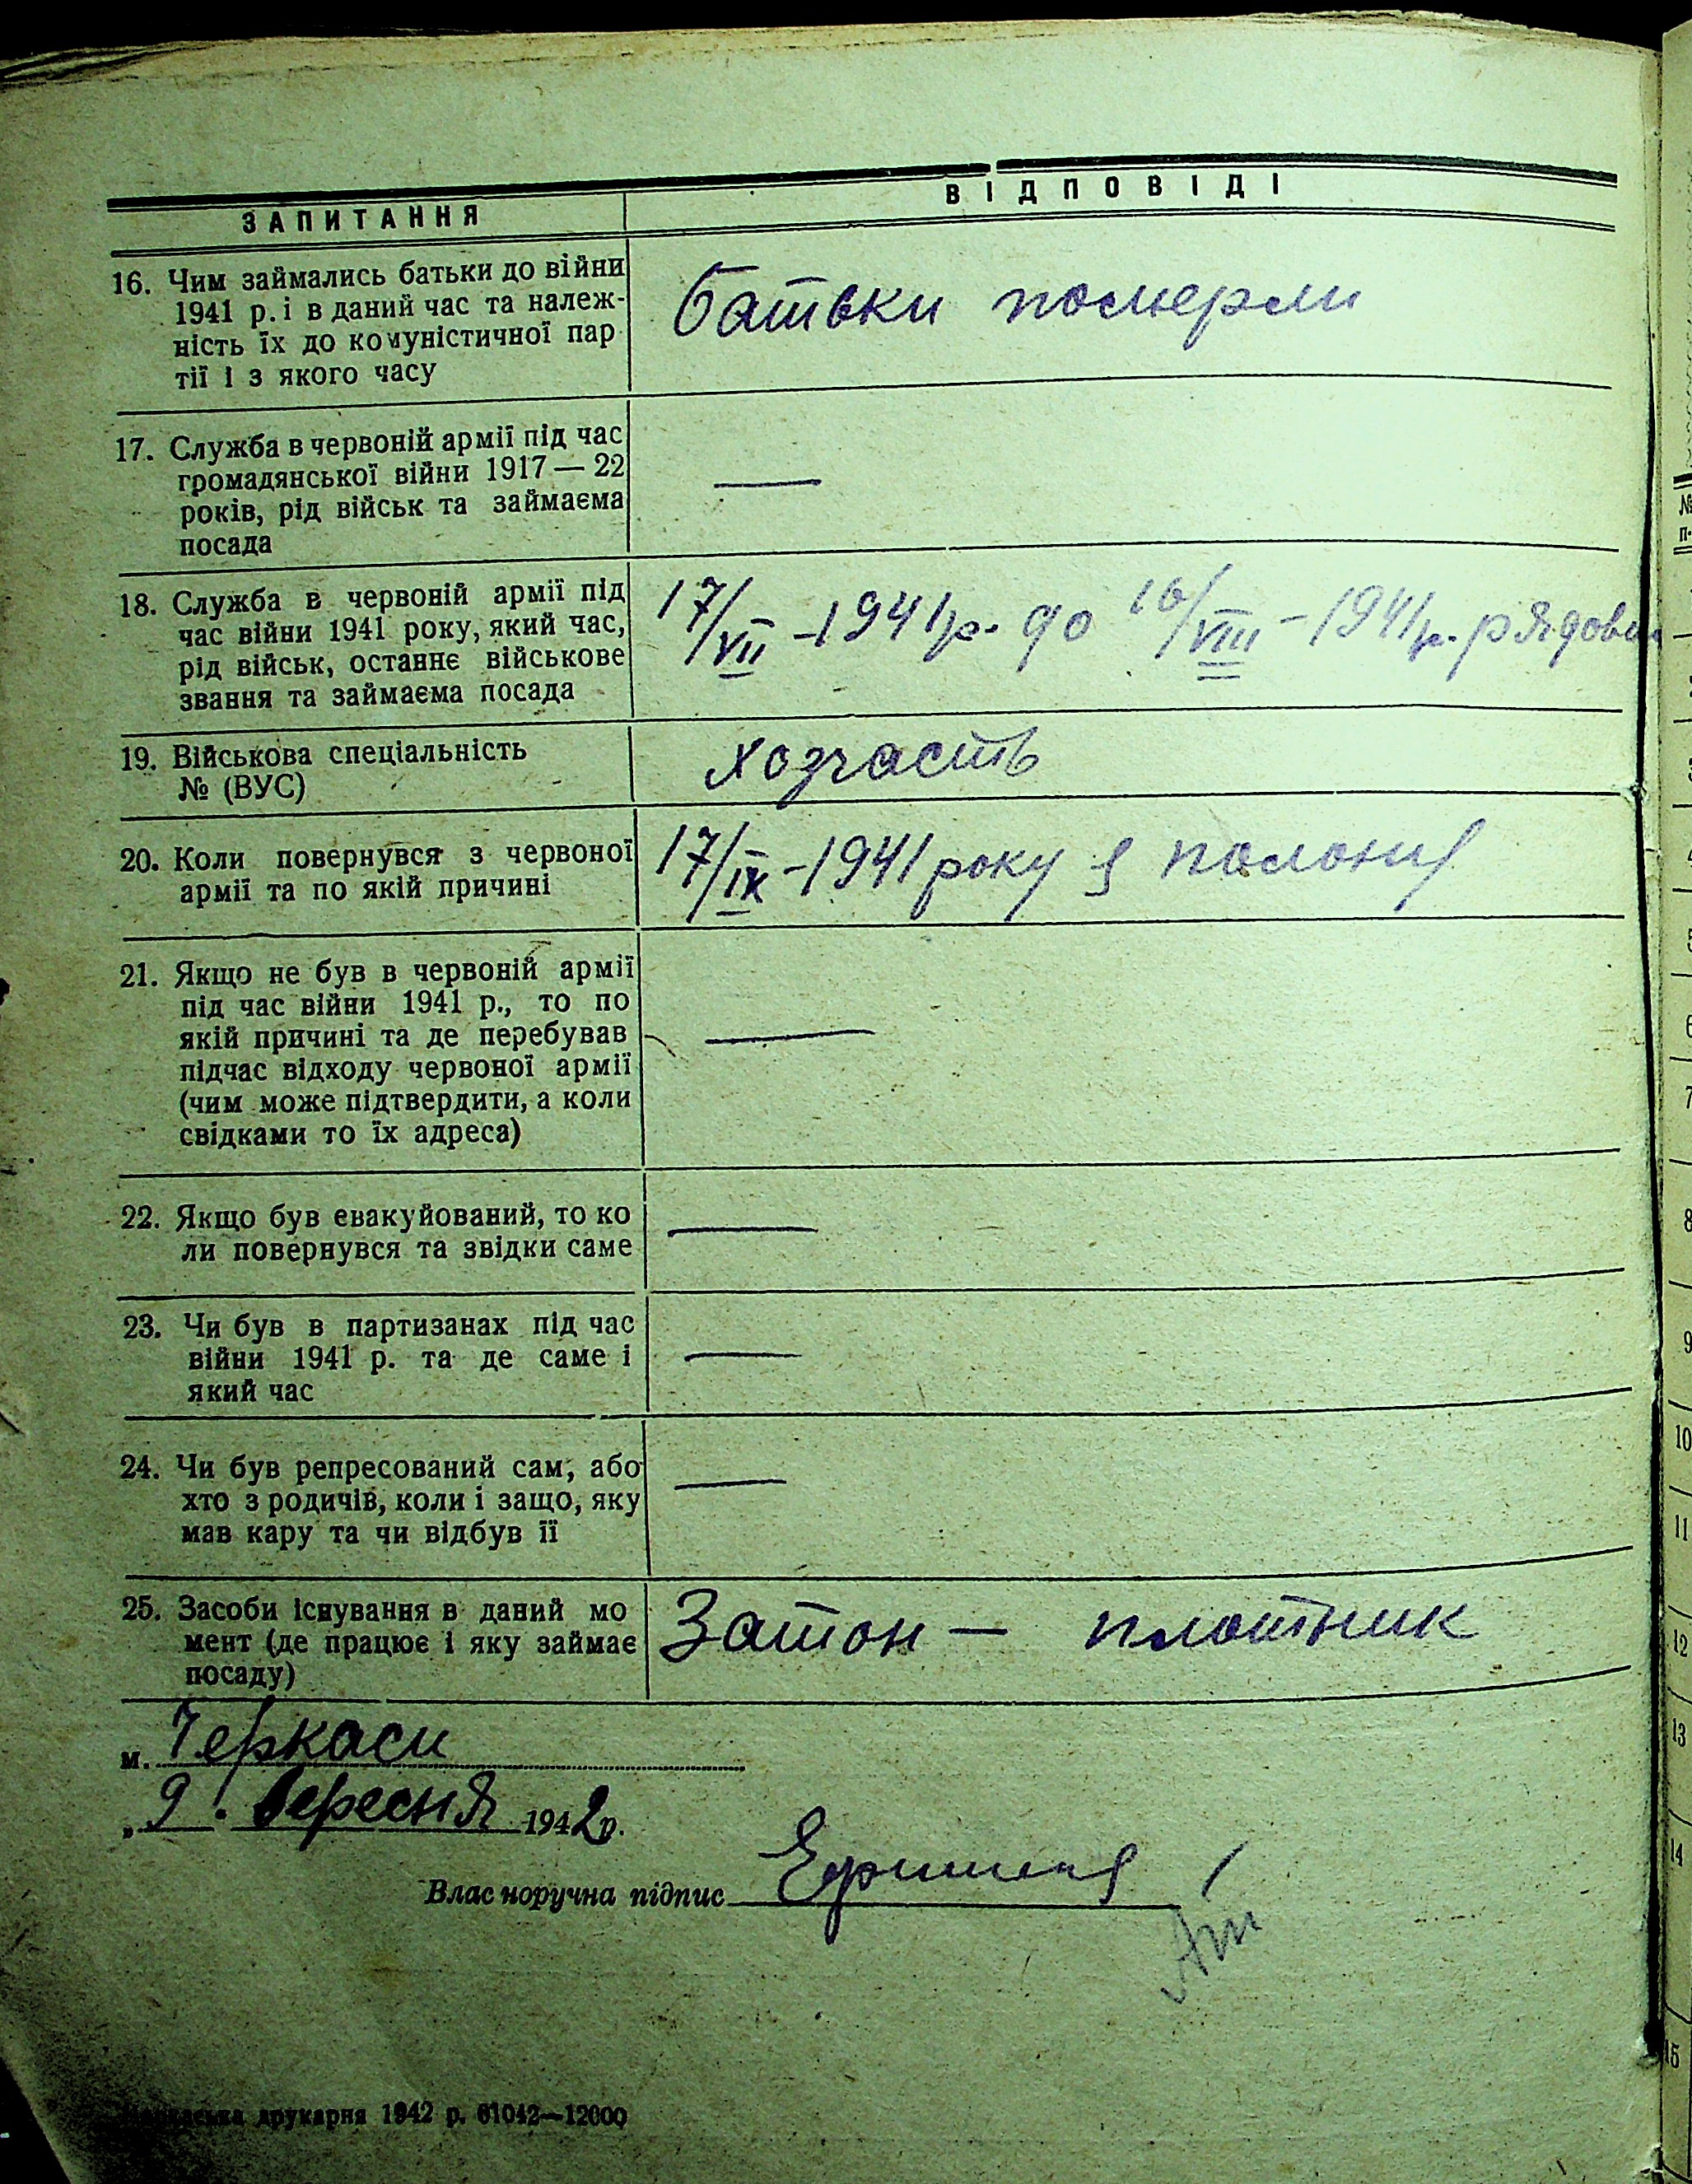 ЗАПИТАННЯ
ВІДПОВІДІ
16. Чим займались батьки до війни
1941 р. і в даний час та належ-
ність їх до комуністичної пар
тії і з якого часу
батьки померли
17. Служба в червоній армії під час
громадянської війни 1917 — 22
років, рід військ та займаєма
посада
—
18. Служба в червоній армії під
час війни 1941 року, який час,
рід військ, останнє військове
звання та займаєма посада
17/VII - 1941р. до 16/VIII - 1941р. рядовий
19. Військова спеціальність
№ (ВУС)
хозчасть
20. Коли повернувся з червоної
армії та по якій причині
17/IX - 1941 року з полону
21. Якщо не був в червоній армії
під час війни 1941 р., то по
якій причині та де перебував
підчас відходу червоної армії
(чим може підтвердити, а коли
свідками то їх адреса)
—
22. Якщо був евакуйований, то ко
ли повернувся та звідки саме
—
23. Чи був в партизанах під час
війни 1941 р. та де саме і
який час
—
24. Чи був репресований сам, або
хто з родичів, коли і защо, яку
мав кару та чи відбув її
—
25. Засоби існування в даний мо
мент (де працює і яку займає
посаду)
Затон — плотник
м. Черкаси
„ 9 . вересня 1942 р.
Власноручна підпис
друкарня 1942 р. 61042—12000
№
п-
5
6
7
8
9
10
11
12
13
14
15